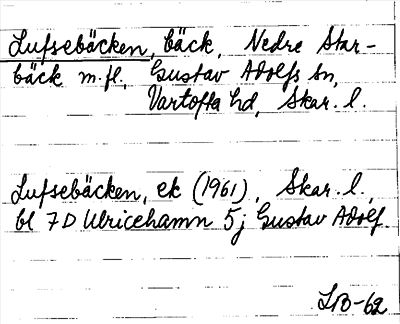 Lufsebäcken, bäck, Nedre Star-
bäck m.fl., Gustav Adolfs sn,
Vartofta hd, Skar. l.
Lufsebäcken, ek (1961), Skar. l.,
bl 7D Ulricehamn 5j Gustav Adolf
LB-62